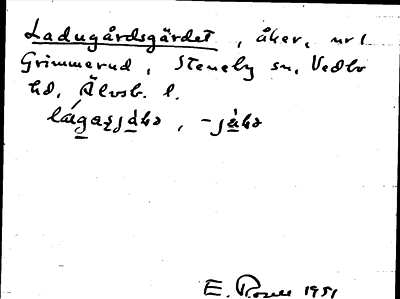 Ladugårdsgärdet, åker, nr 1
Grimmerud, Steneby sn, Vedbo
hd, Älvsb. l.
E. Rosell 1951